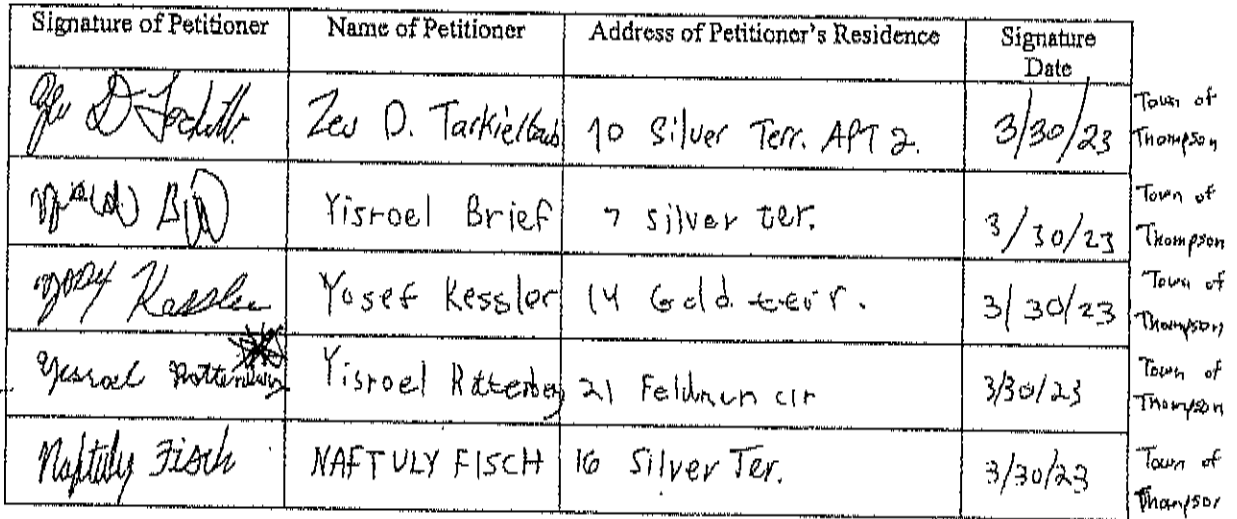 Signature of Petitioner Name of Petitioner Address of Petitioner's Residence Signature Date
Zev D. 10 Silver Terr. APT 2. 3/30/23 Town of Thompson
Yisroel Brief 7 silver ter. 3/30/23 Town of Thompson
Yosef Kessler Yosef Kessler 14 Gold terr. 3/30/23 Town of Thompson
Yisroel 21 Feldman cir 3/30/23 Town of Thompson
Naftuly Fisch NAFTULY FISCH 16 Silver Ter. 3/30/23 Town of Thompson